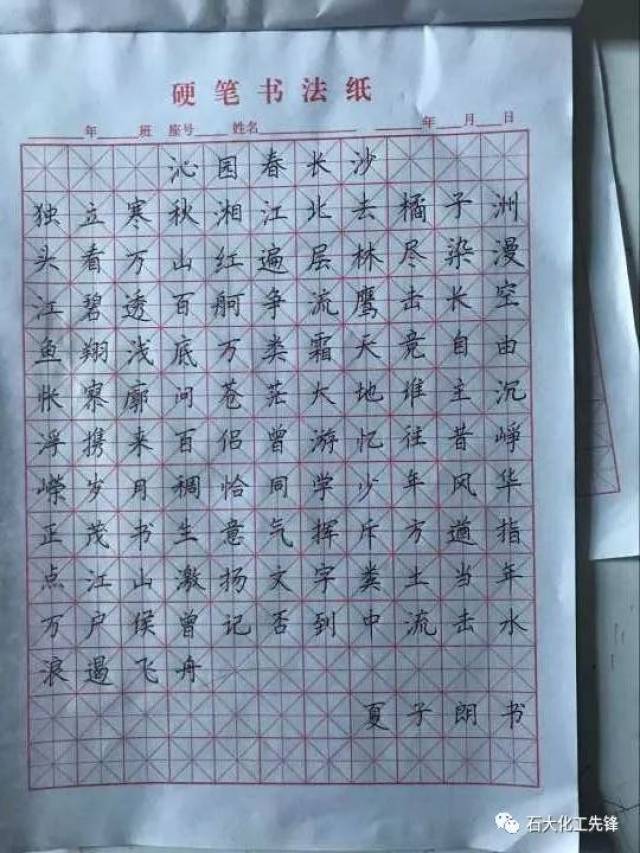 硬笔书法纸
年 班 座号 姓名 年 月 日
沁园春长沙
独立寒秋湘江北去橘子洲
头看万山红遍层林尽染漫
江碧透百舸争流鹰击长空
鱼翔浅底万类霜天竞自由
怅寥廓问苍茫大地谁主沉
浮携来百侣曾游忆往昔峥
嵘岁月稠恰同学少年风华
正茂书生意气挥斥方遒指
点江山激扬文字粪土当年
万户侯曾记否到中流击水
浪遏飞舟
夏子朗书
石大化工先锋